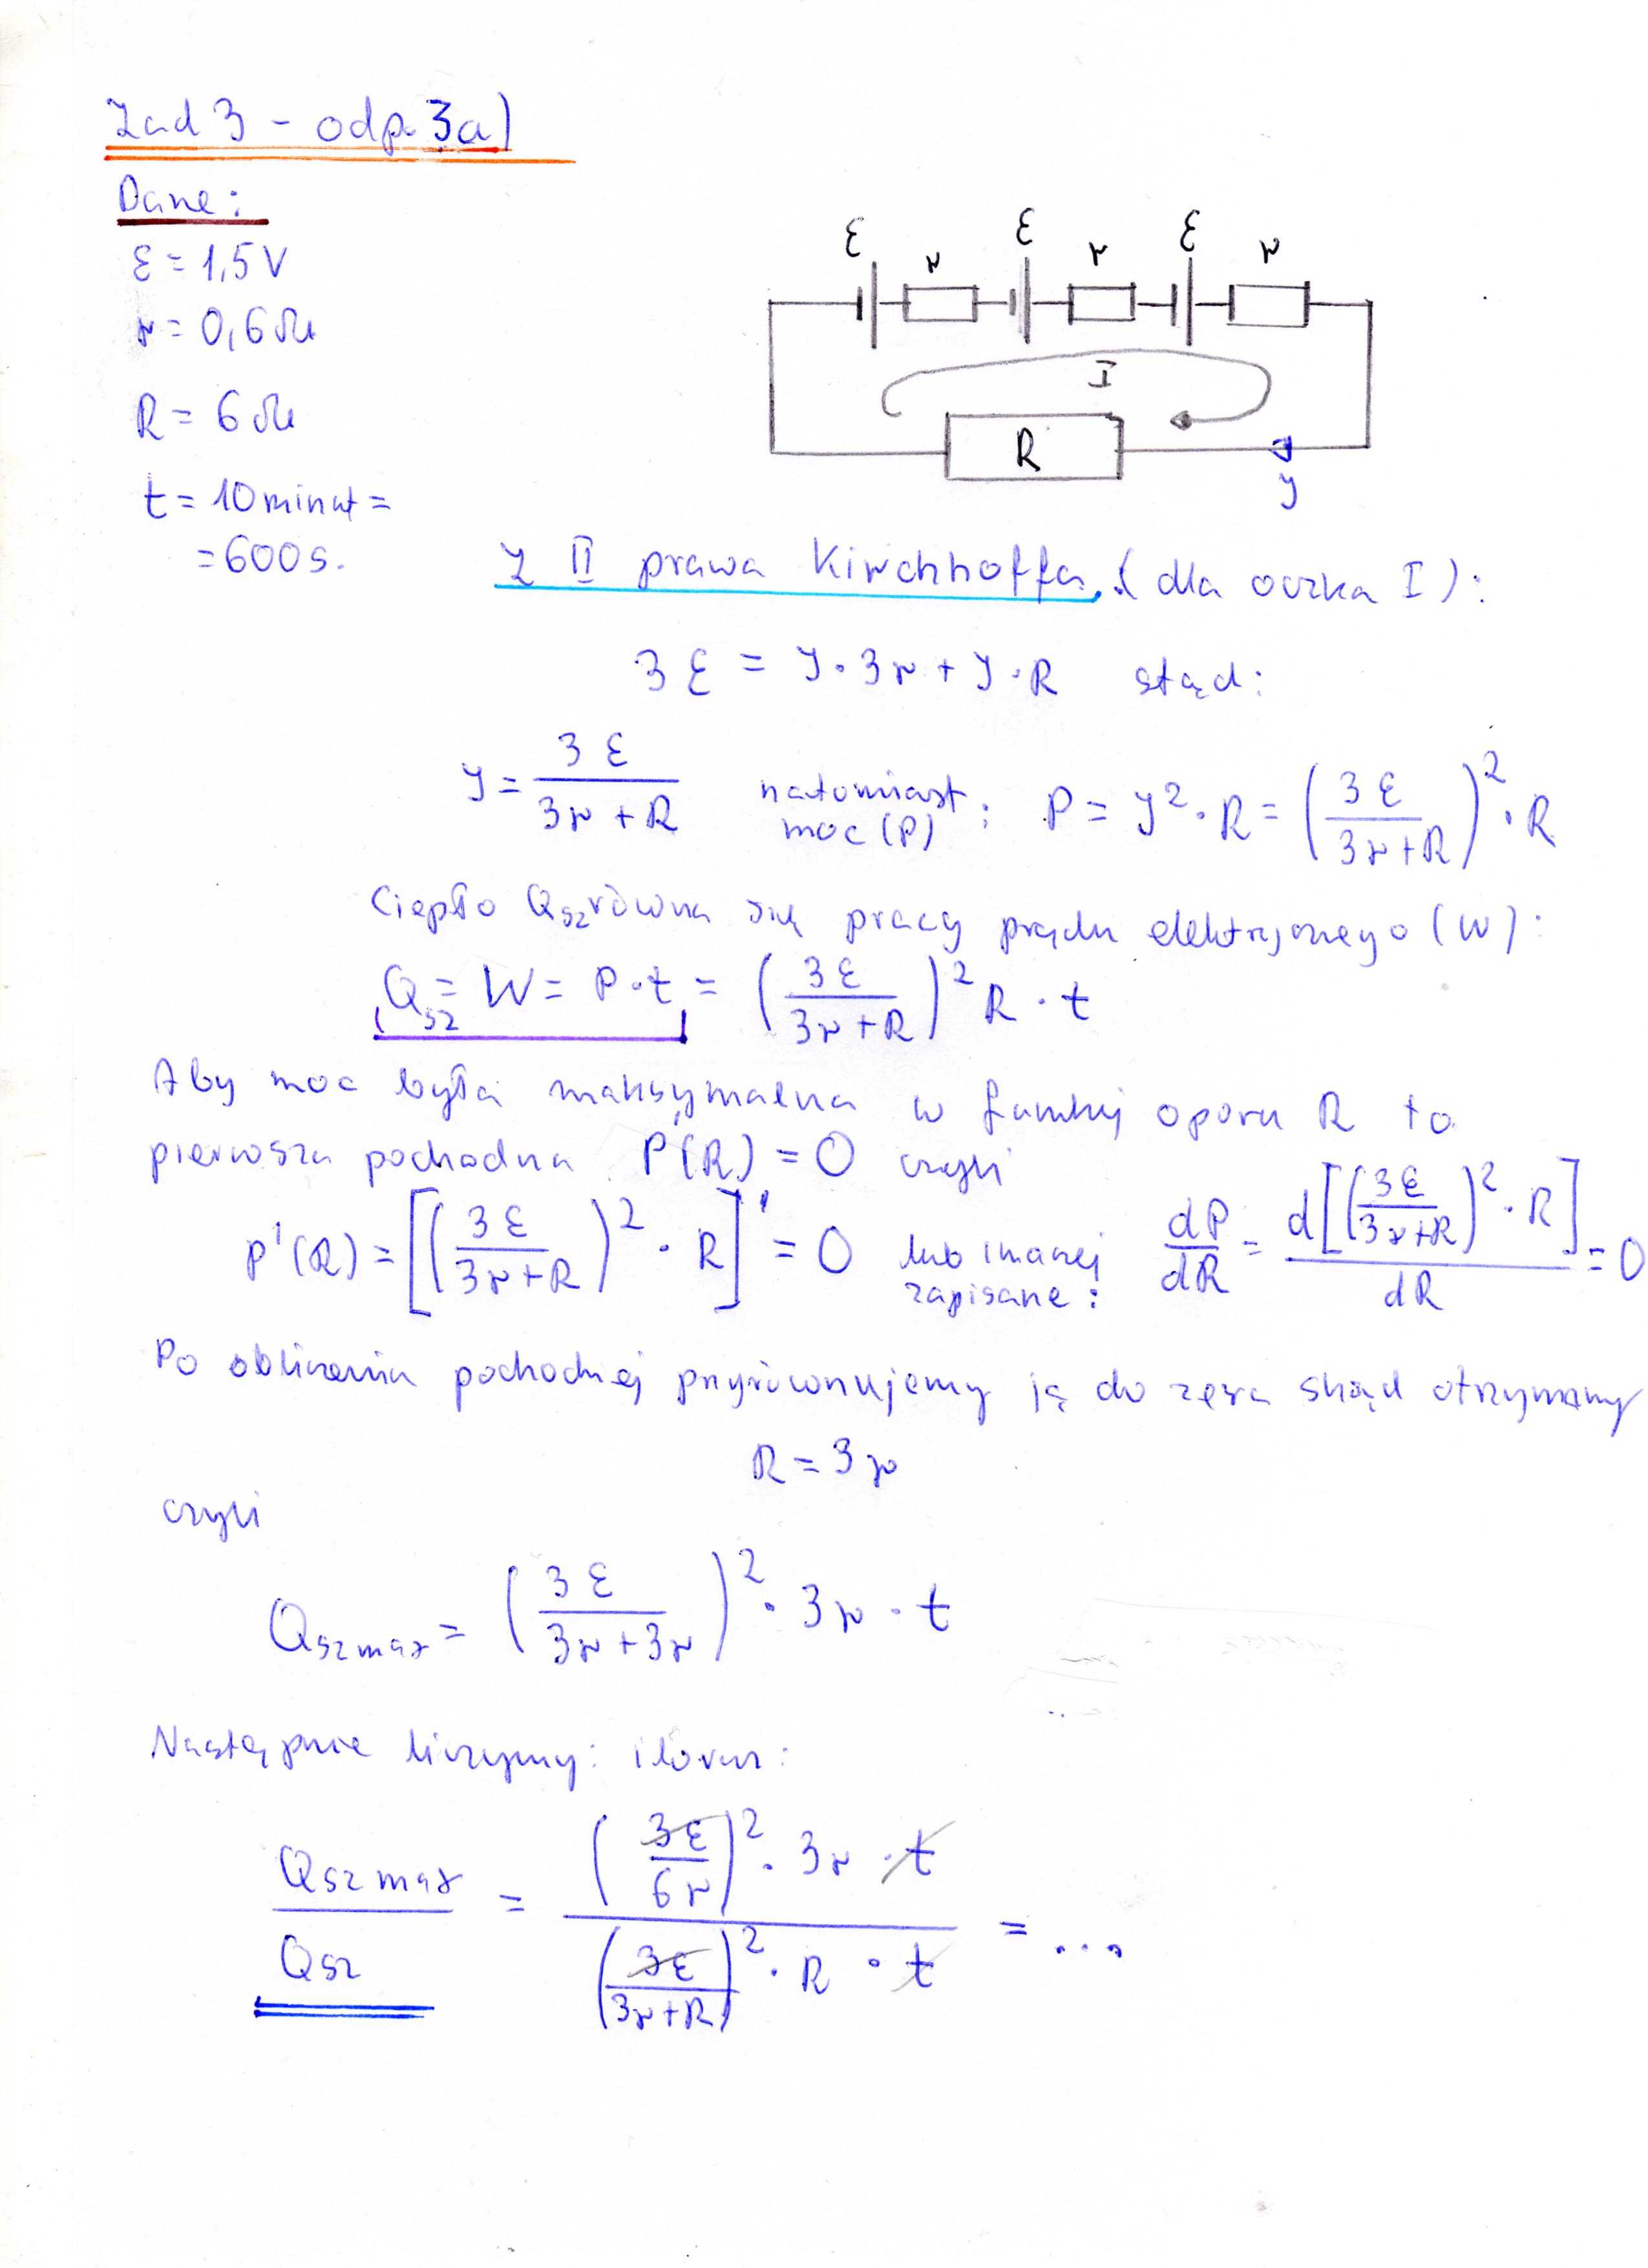 Zad 3 - odp. 3a)
Dane:
ε = 1,5 V
r = 0,6 Ω
R = 6 Ω
t = 10 minut =
= 600 s.
ε r ε r ε r
I
R
y
Z II prawa Kirchhoffa. (dla oczka I):
3 ε = y · 3r + y · R stąd:
y = 3 ε / (3r + R) natomiast moc (P) : P = y² · R = (3 ε / (3r + R))² · R
Ciepło Qsz równa się pracy prądu elektrycznego (W):
Qsz = W = P · t = (3 ε / (3r + R))² R · t
Aby moc była maksymalna w funkcji oporu R to
pierwsza pochodna P'(R) = 0 czyli
p'(R) = [(3 ε / (3r + R))² · R]' = 0 lub inaczej zapisane: dP/dR = d[(3 ε / (3r + R))² · R] / dR = 0
Po obliczeniu pochodnej przyrównujemy ją do zera skąd otrzymamy
R = 3r
czyli
Qsz max = (3 ε / (3r + 3r))² · 3r · t
Następnie liczymy: iloraz:
Qsz max / Qsz = (3ε / 6r)² · 3r · t / (3ε / (3r + R))² · R · t = ...